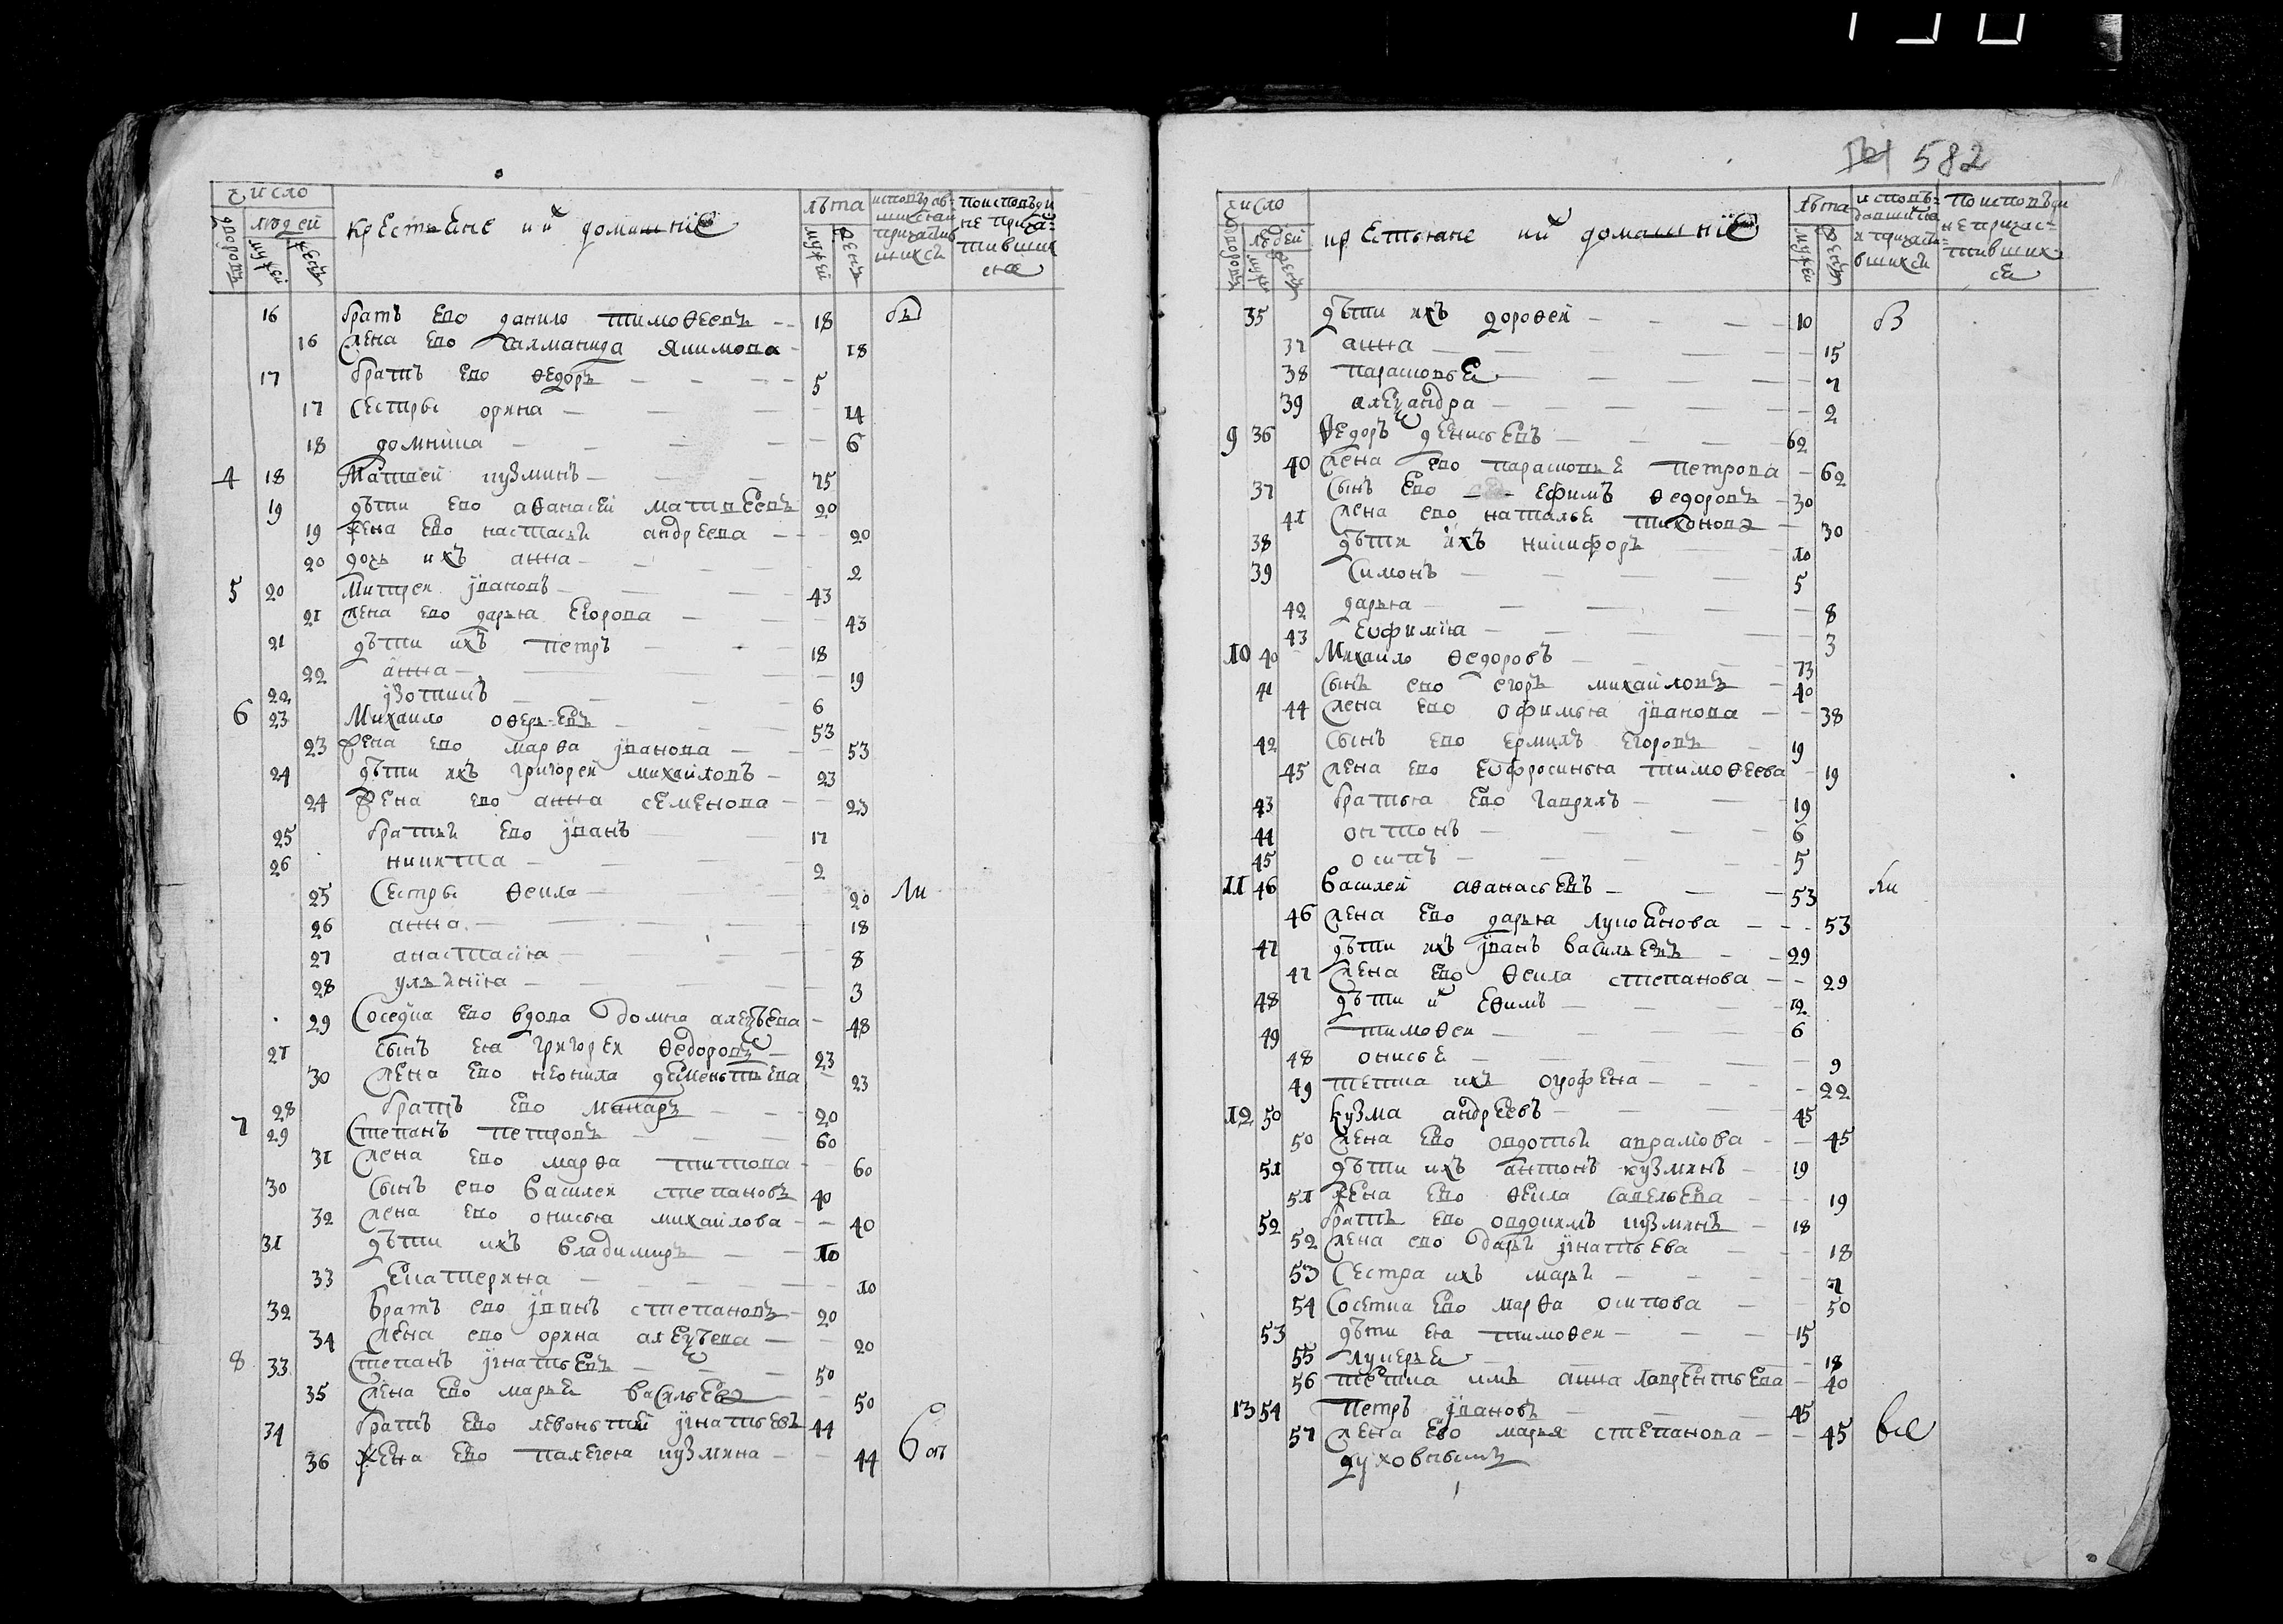 число
людей
дворовъ
мужей
женъ
крестьяне и ихъ домашніе
лѣта
мужей
женъ
исповѣдавшихся и причастившихся
по исповѣди не причастившихся
16 братъ ево данило тимоѳеевъ 18 бы
16 жена ево салманида якимова 18
17 братъ ево ѳедоръ 5
17 сестры орина 14
18 домника 6
4 18 Матвей кузминъ 75
19 дѣти ево аѳанасей матвеевъ 20
19 жена ево настасья андреева 20
20 дочь ихъ анна 2
5 20 Митрей ївановъ 43
21 жена ево дарья егорова 43
21 дѣти ихъ петръ 18
22 анна 19
22 їзотикъ 6
6 23 Михаило оѳерьевъ 53
23 жена ево марѳа їванова 53
24 дѣти ихъ григорей михайловъ 23
24 жена ево анна семенова 23
25 братья ево їванъ 17
26 никита 2
25 сестры ѳекла 20 ли
26 анна 18
27 анастасіѧ 8
28 ульяніѧ 3
29 Соседка ево вдова домна алеѯѣева 48
27 сынъ еѧ григорей ѳедоровъ 23
30 жена ево неонила деменьтьева 23
28 братъ ево макаръ 20
7 29 Степанъ петровъ 60
31 жена ево марѳа титова 60
30 сынъ ево василей степановъ 40
32 жена ево онисьѧ михайлова 40
31 дѣти ихъ владимиръ 10
33 екатерина 10
32 братъ ево їванъ степановъ 20
34 жена ево орина алеѯѣева 20
8 33 Степанъ їгнатьевъ 50
35 жена ево марья васильева 50
34 братъ ево левонътій їгнатьевъ 44
36 жена ево палегея кузмина 44
582
число
дворовъ
людей
мужей
женъ
крестьяне и ихъ домашніе
лѣта
мужей
женъ
исповѣдавшихся и причастившихся
не по исповѣди причастившихся
35 дѣти ихъ дороѳей 10
37 анна 15
38 парасковья 7
39 алеѯандра 2
9 36 Ѳедоръ денисьевъ 62
40 жена ево парасковье петрова 62
37 сынъ ево ефимъ ѳедоровъ 30
41 жена ево наталье тихонова 30
38 дѣти ихъ никифоръ 10
39 симонъ 5
42 дарьѧ 8
43 еѵфиміѧ 3
10 40 Михаило ѳедоровъ 73
41 сынъ ево егоръ михайловъ 40
44 жена ево офимьѧ їванова 38
42 сынъ ево ермилъ егоровъ 19
45 жена ево еѵфросиньѧ тимоѳеева 19
43 братьѧ ево гаврилъ 19
44 онтонъ 6
45 осипъ 5
11 46 василей аѳанасьевъ 53 ли
46 жена ево дарьѧ лукоянова 53
47 дѣти ихъ їванъ васильевъ 29
47 жена ево ѳекла степанова 29
48 дѣти ихъ еѳимъ 12
49 тимоѳеи 6
48 онисья 9
49 тетка ихъ 22
12 50 кузма андреевъ 45
50 жена ево овдотья аврамова 45
51 дѣти ихъ антонъ кузминъ 19
51 жена ево ѳекла савельева 19
52 братъ ево овдокимъ кузминъ 18
52 жена ево дарья їгнатьева 18
53 сестра ихъ марья 7
54 сосетка ево марѳа осипова 50
53 дѣти еѧ тимоѳеи 15
55 лукерья 18
56 тетка имъ анна лаврентьева 40
13 54 Петръ ївановъ 45
57 жена ево марья степанова 45 все
духовнымъ